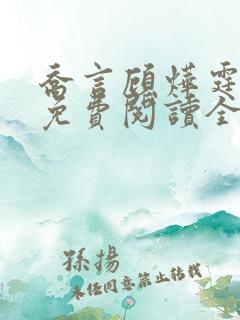 喬言顧燁霆
免費閱讀全
孫揚
未經同意禁止轉載